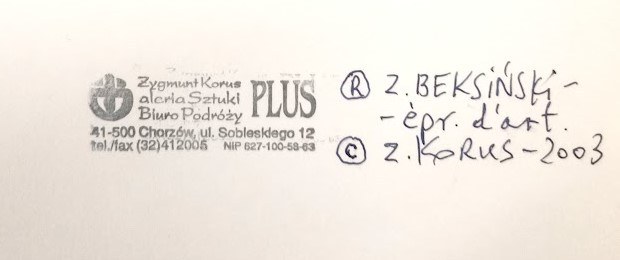 Zygmunt Korus
aleria Sztuki
Biuro Podróży
PLUS
41-500 Chorzów, ul. Sobieskiego 12
tel./fax (32)412005 NIP 627-100-58-63
Ⓡ Z. BEKSIŃSKI -
- èpr. d'art.
Ⓒ Z. KORUS - 2003